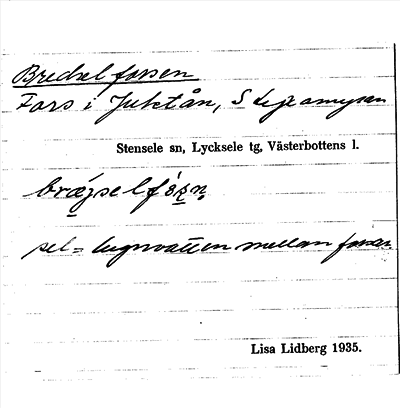 Bredselforsen
Fors i Juktån, S
Stensele sn, Lycksele tg, Västerbottens l.
sel = lugnvatten mellan forsar
Lisa Lidberg 1935.